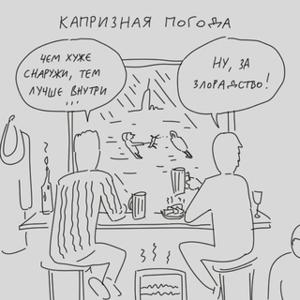 КАПРИЗНАЯ ПОГОДА
ЧЕМ ХУЖЕ
СНАРУЖИ, ТЕМ
ЛУЧШЕ ВНУТРИ
...
НУ, ЗА
ЗЛОРАДСТВО!